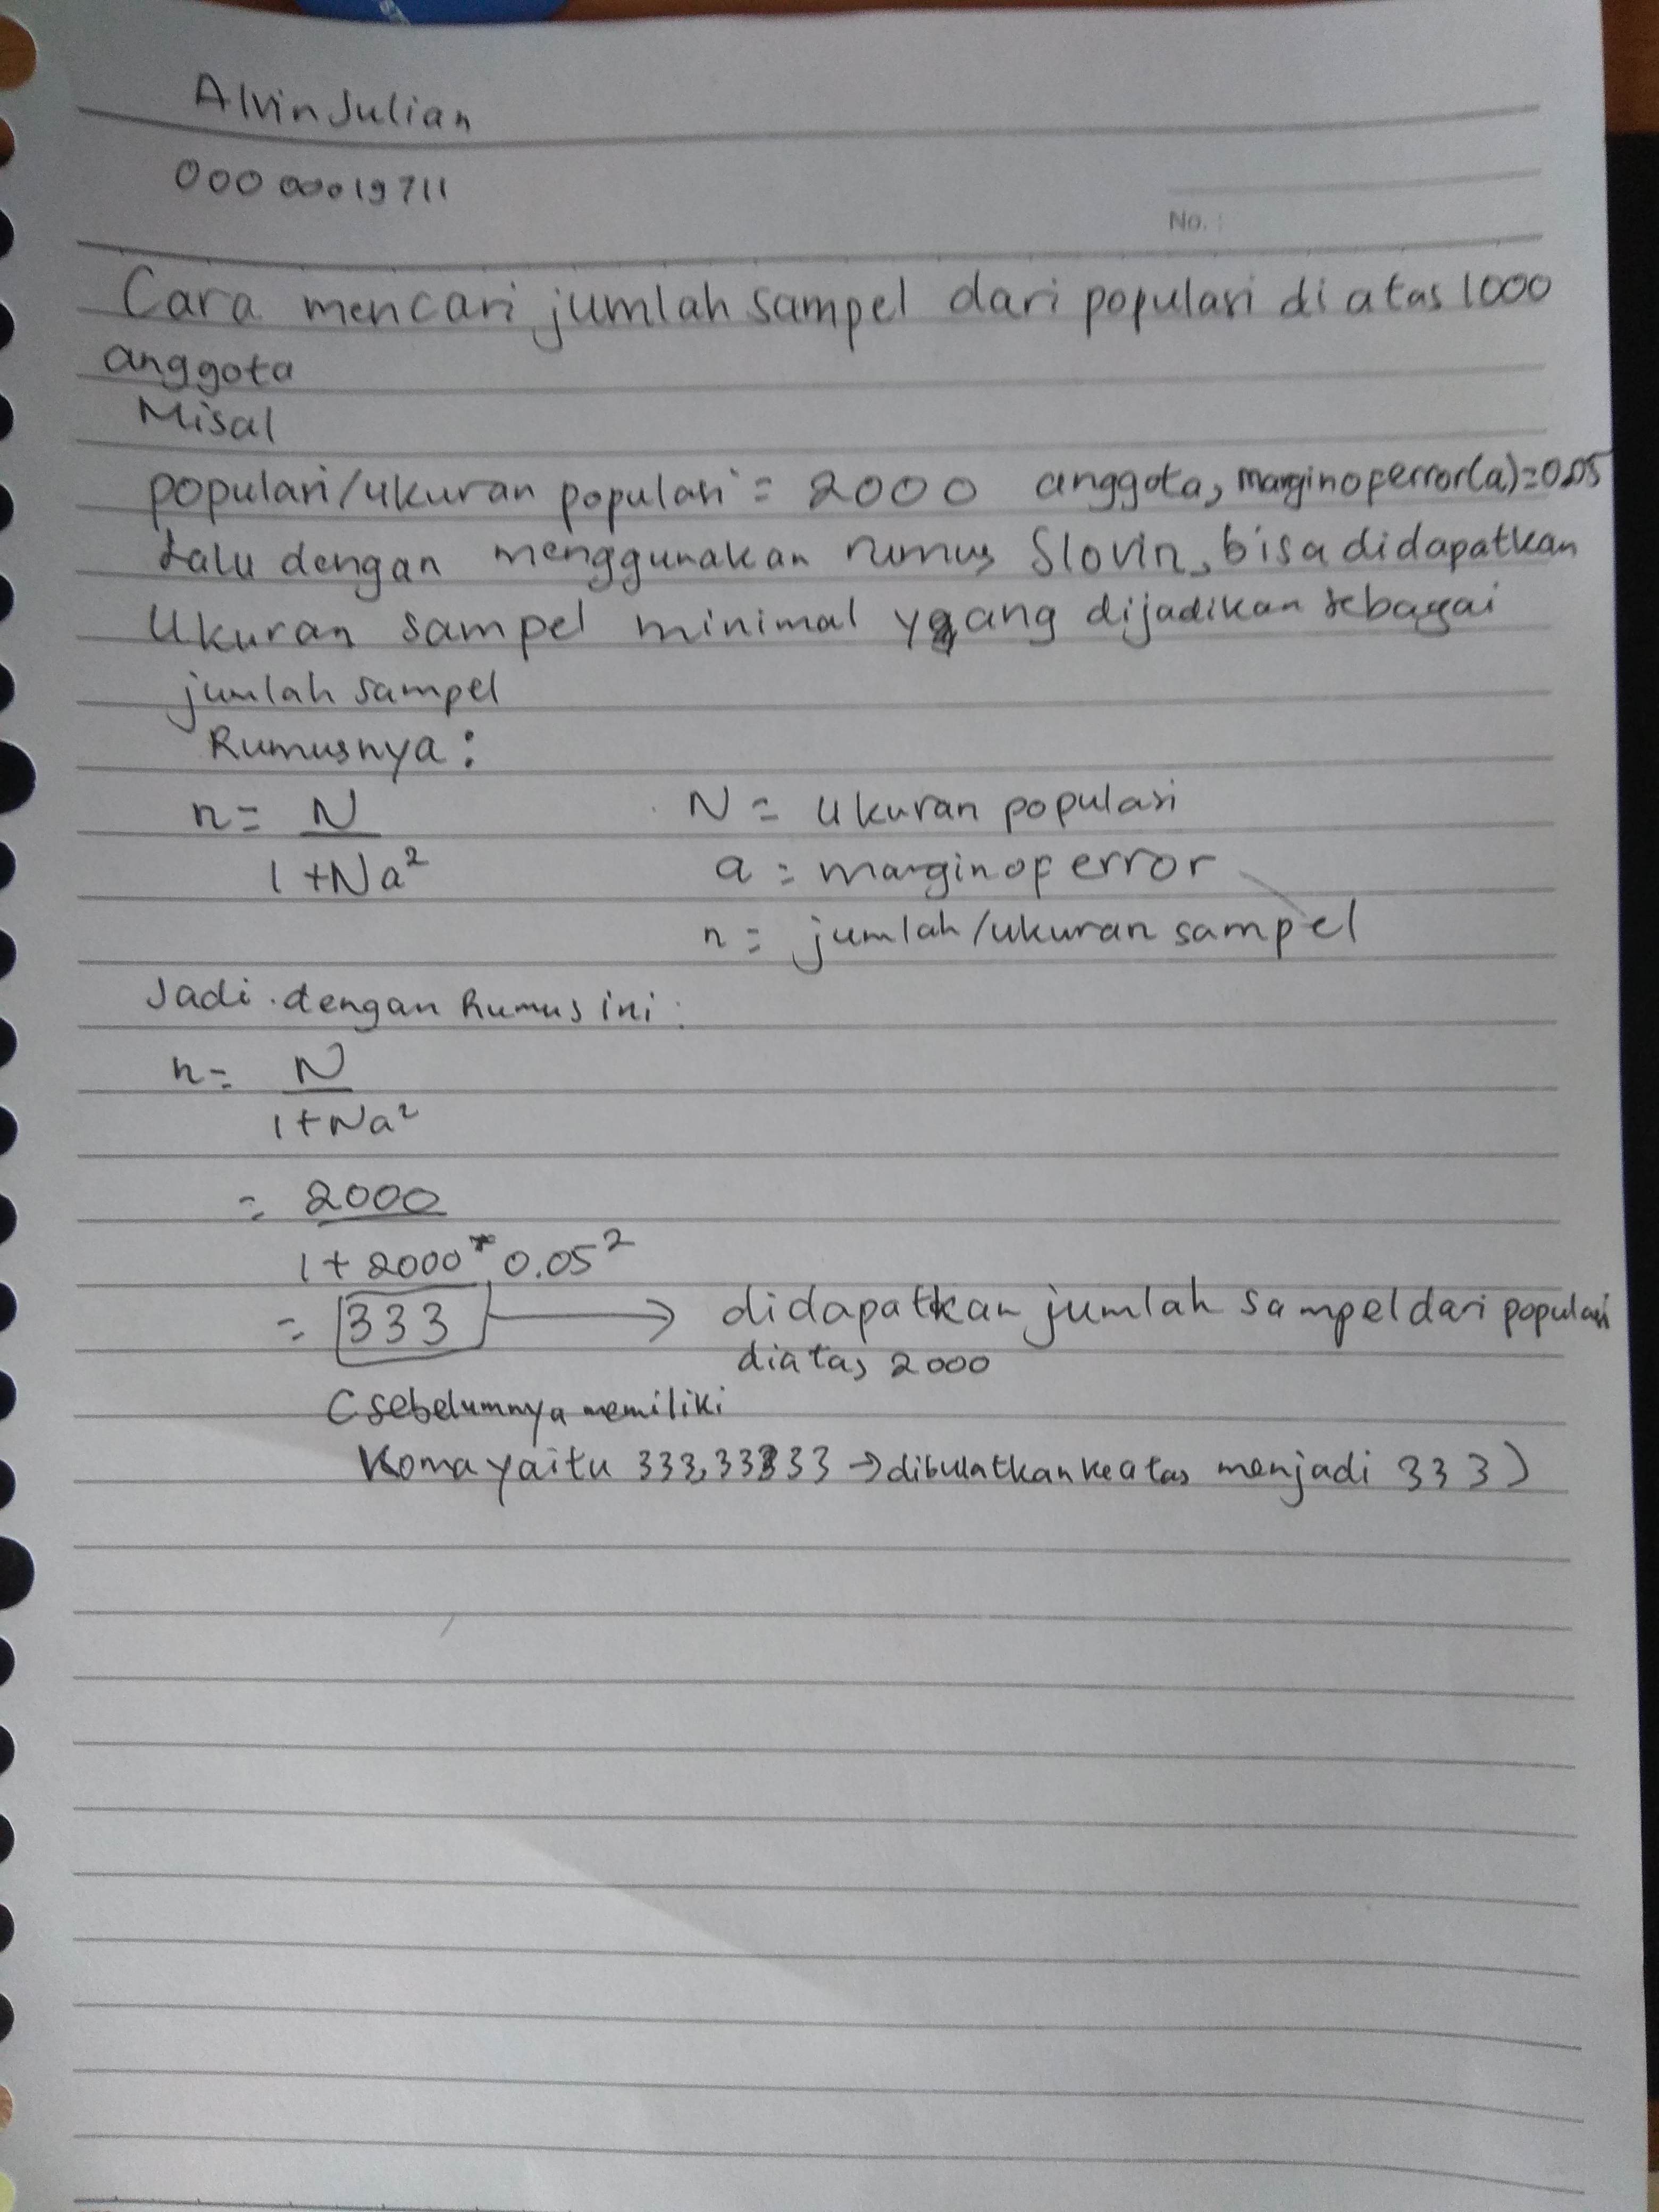 Alvin Julian
00000019711
No. :
Cara mencari jumlah sampel dari populasi di atas 1000
anggota
Misal
populasi/ukuran populasi = 2000 anggota, margin of error(a)=0.05
Lalu dengan menggunakan rumus Slovin, bisa didapatkan
Ukuran sampel minimal yang dijadikan sebagai
jumlah sampel
Rumusnya :
n = N N = ukuran populasi
1+Na² a = margin of error
n = jumlah/ukuran sampel
Jadi dengan Rumus ini :
n = N
1+Na²
= 2000
1+2000*0.05²
= 333 → didapatkan jumlah sampel dari populasi
diatas 2000
(sebelumnya memiliki
Koma yaitu 333,33333 → dibulatkan keatas menjadi 333)